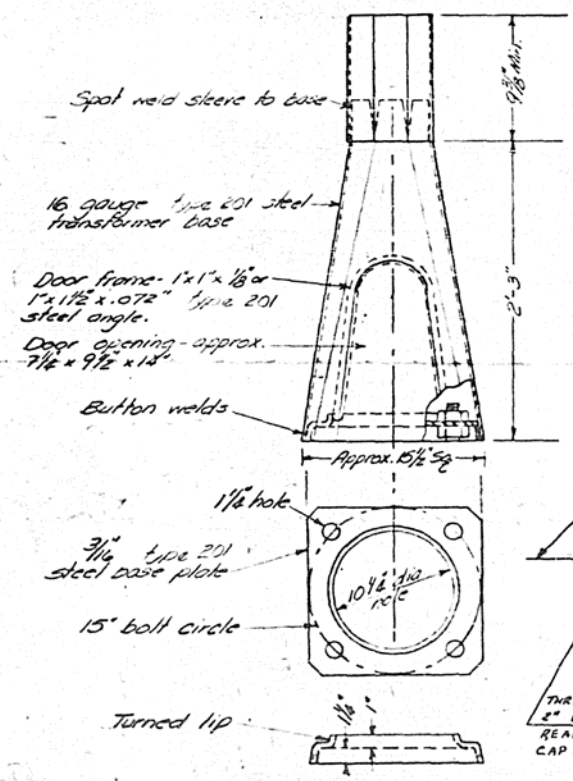 9 3/8" Min.
Spot weld sleeve to base
16 gauge type 201 steel
transformer base
2'-3"
Door frame - 1"x1"x 1/8" or
1"x1 1/2"x .072" type 201
steel angle.
Door opening - approx.
7 1/4" x 9 1/2" x 14"
Button welds
Approx. 15 1/2" Sq
1 1/4" hole
3/16" type 201
steel base plate
10 1/4" dia
hole
15" bolt circle
Turned lip
1 1/4"
1"
2"
CAP